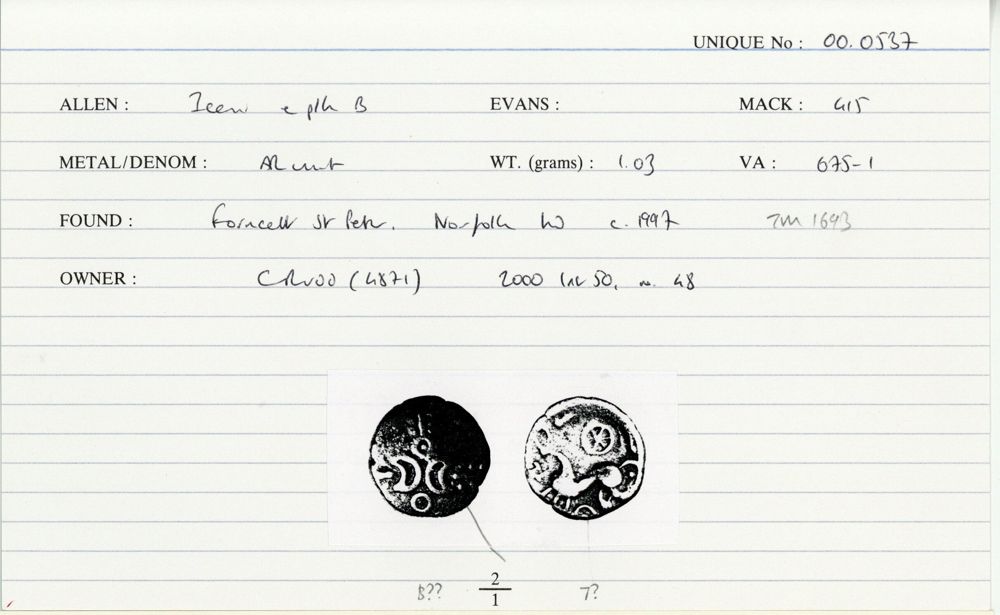 UNIQUE No : 00.0537
ALLEN : Icen e plh B EVANS : MACK : 415
METAL/DENOM : AR unit WT. (grams) : 1.03 VA : 675-1
FOUND : Forncett St Peter. Norfolk c. 1997 TM 1693
OWNER : CR 00 (4871) 2000 50, no. 48
2
B?? 7?
1